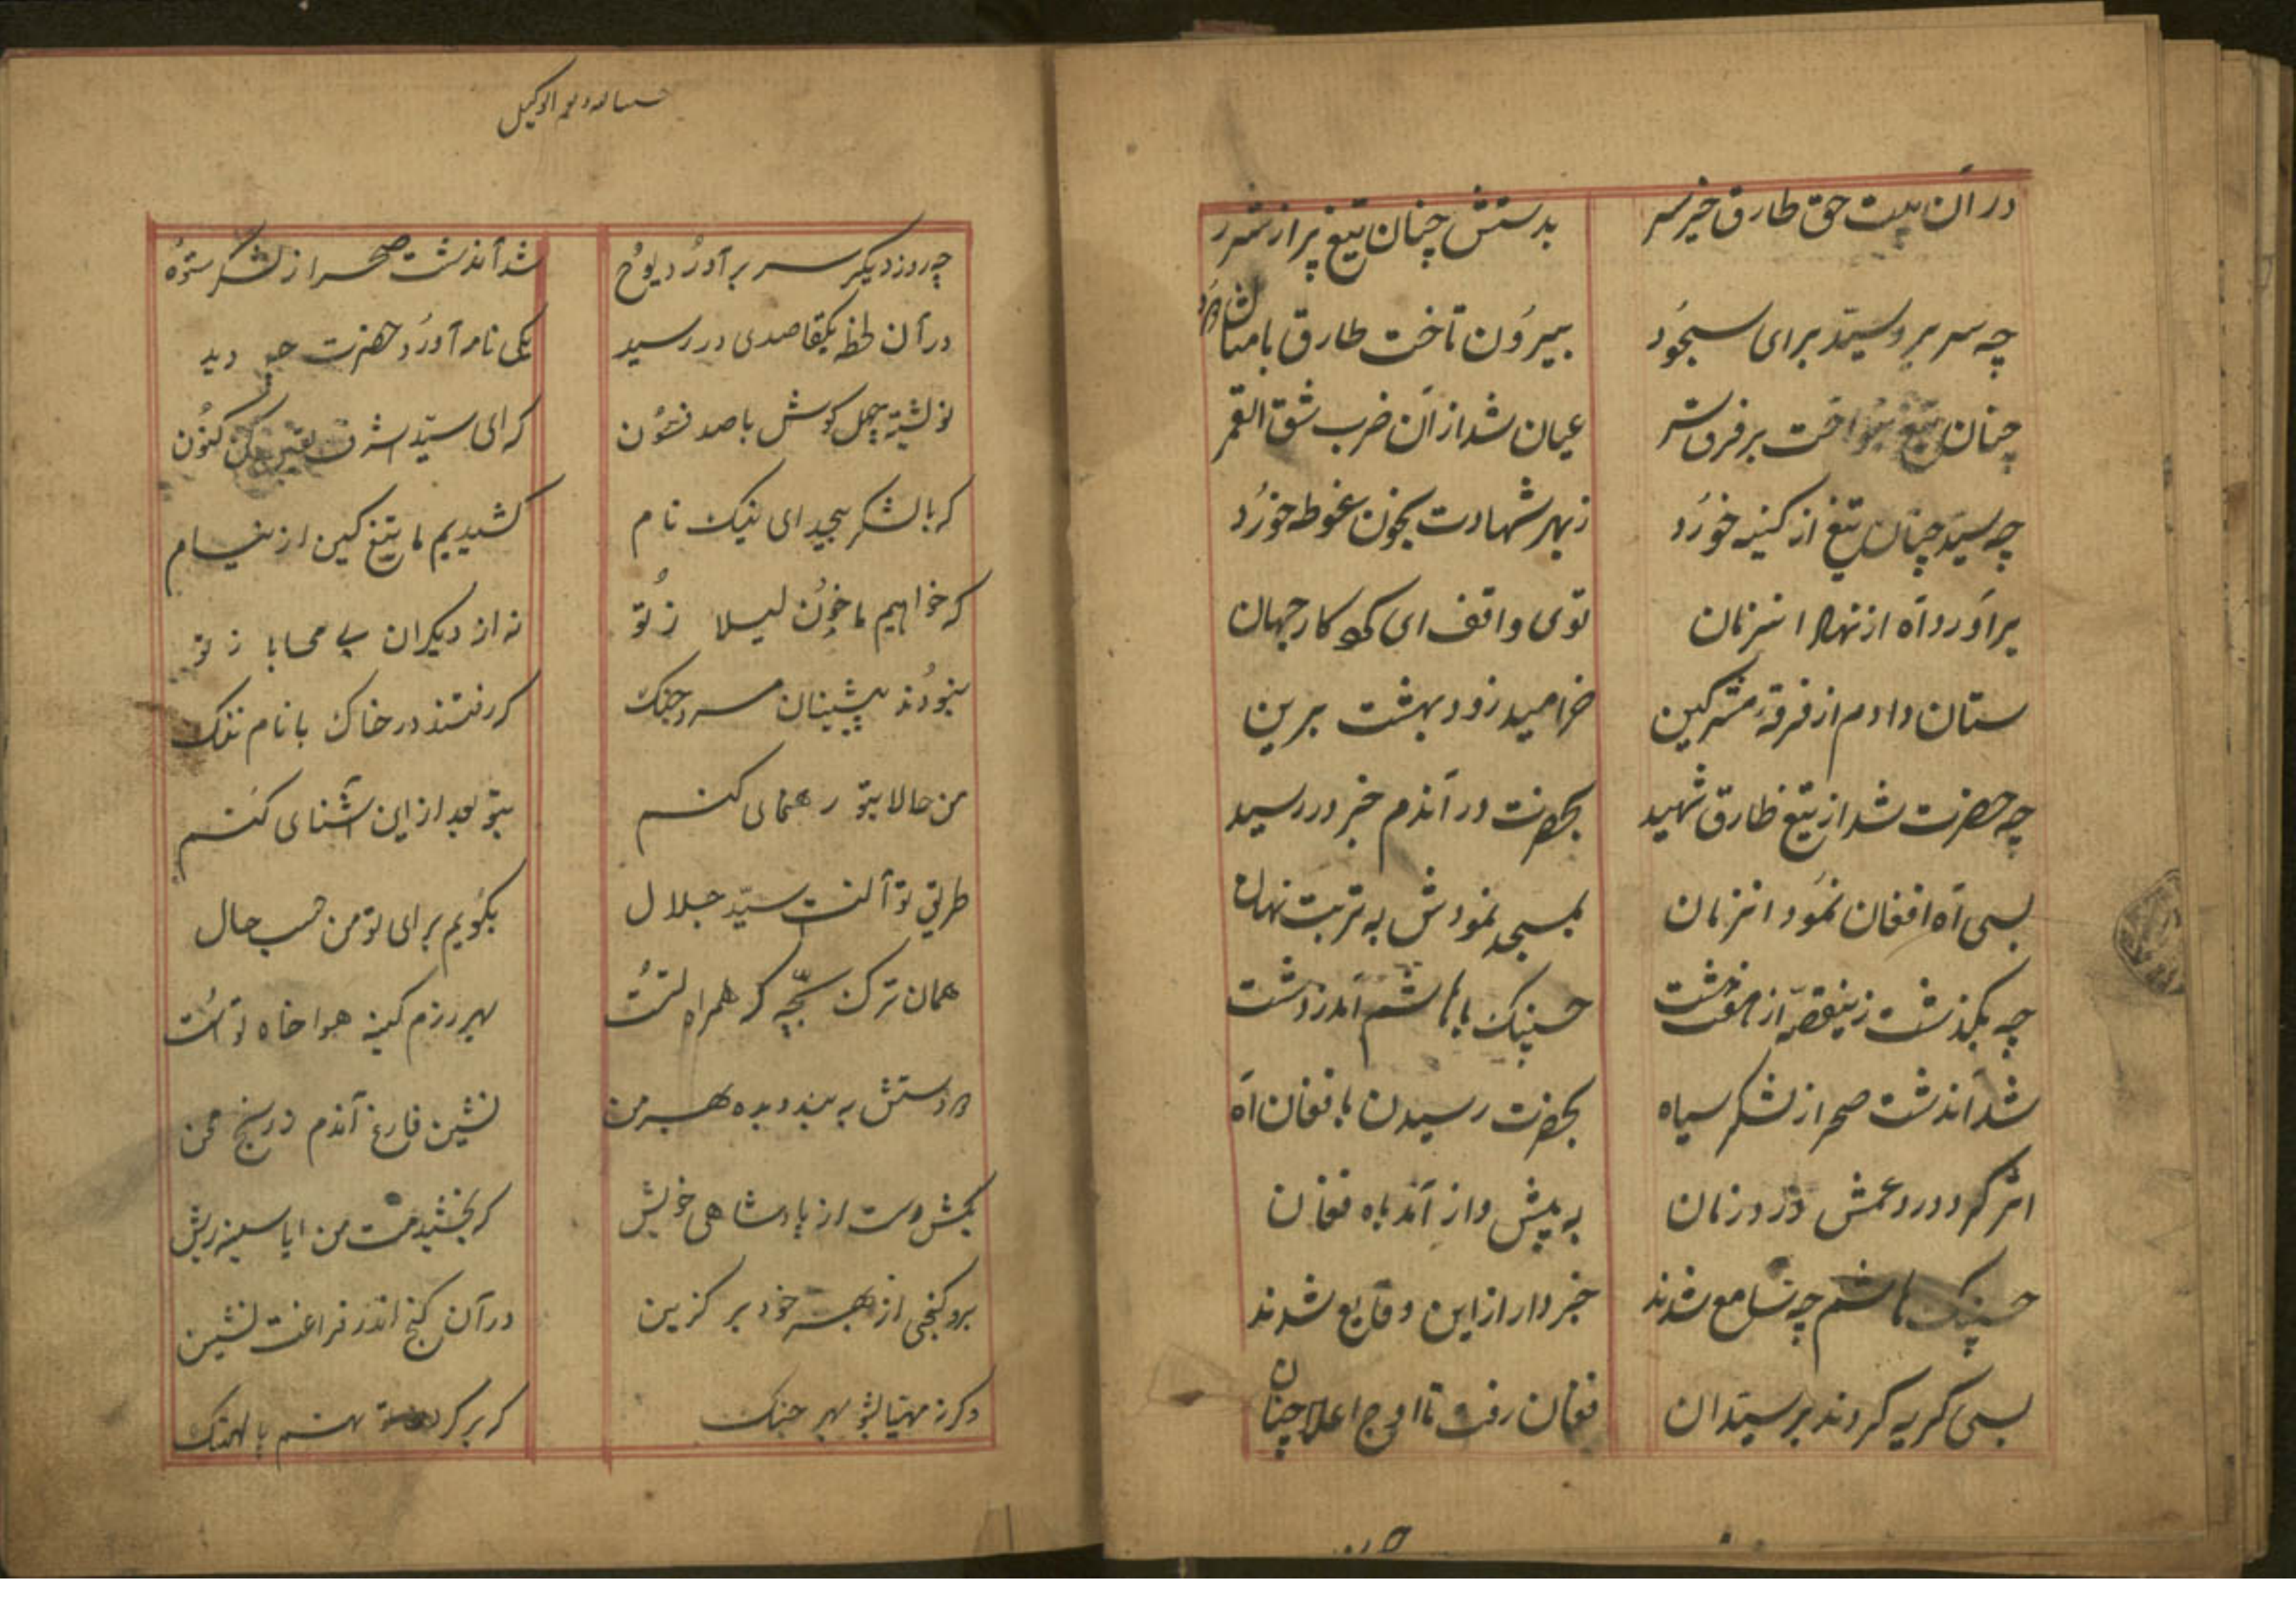 در آن بیت حق طارق خیره سر بدستش چنان تیغ پر از شرر
چه سر برد سیّد برای سجُود بیرُون تاخت طارق بامتا
چنان تیغ بنواخت بر فرق سر عیان شد از آن ضرب شق القمر
چه سیّد چنان تیغ از کینه خورُد ز بهر شهادت بخون غوطه خورُد
برآورد آه از نهاد انزمان توی واقف ای که کار جهان
ستان دادم از فرقهٔ مشرکین خرامید زود بهشت برین
چه حضرت شد از تیغ طارق شهید بحضرت در آندم خبر در رسید
بسی آه افغان نمُود انزمان بمسجد نمودش به تربت نهان
چه بگذشت زینقصّه از هفت حسینک باهاشم آمد ز دشت
شد آندشت صحرا ز لشکر سیاه بحضرت رسیدن با فغان آه
اثر کرد درد عمش در زمان به پیش واز آمد باه فغان
حسینک هاشم چه سامع شدند خبردار از این وقایع شدند
بسی کریه کردند بر سیّدان فغان رفت تا اوج اعلا چنان
حسبنا الله و نعم الوکیل
چه روز دیکر سر برآورُد یوُح شد آندشت صحرا ز لشکر ستوُه
در آن لحظه یکقاصدی در رسید یکی نامه آورُد حضرت چو دید
نوشته چهل کوش با صد فسُون که ای سیّد اشرف یقین کن کنُون
که با لشکر بیحد ای نیک نام کشیدیم ما تیغ کین از نیام
که خواهیم ما خوُن لیلا ز تُو نه از دیکران بی محابا ز تو
نبودُند پیشینان مرد جنک که رفتند در خاک با نام ننک
من حالا بتو رهنمای کنم بتو بعد از این آشنای کنم
طریق تو آنست سیّد جلال بکُویم برای تو من حسب حال
همان ترک بچّه که همراه تُست بهر رزم کینه هوا خاه توُست
دو دستش به بند و بده بهر من نشین فارغ آندم ز رنج محن
بکش دست از پادشاهی خویش که بخشیدمت من ایا سینه ریش
برو کنجی از بهر خود بر کزین در آن کنج اندر فراغت نشین
دکر نه مهیّا بشو بهر جنک که بر کردن تو نهم پالهنک